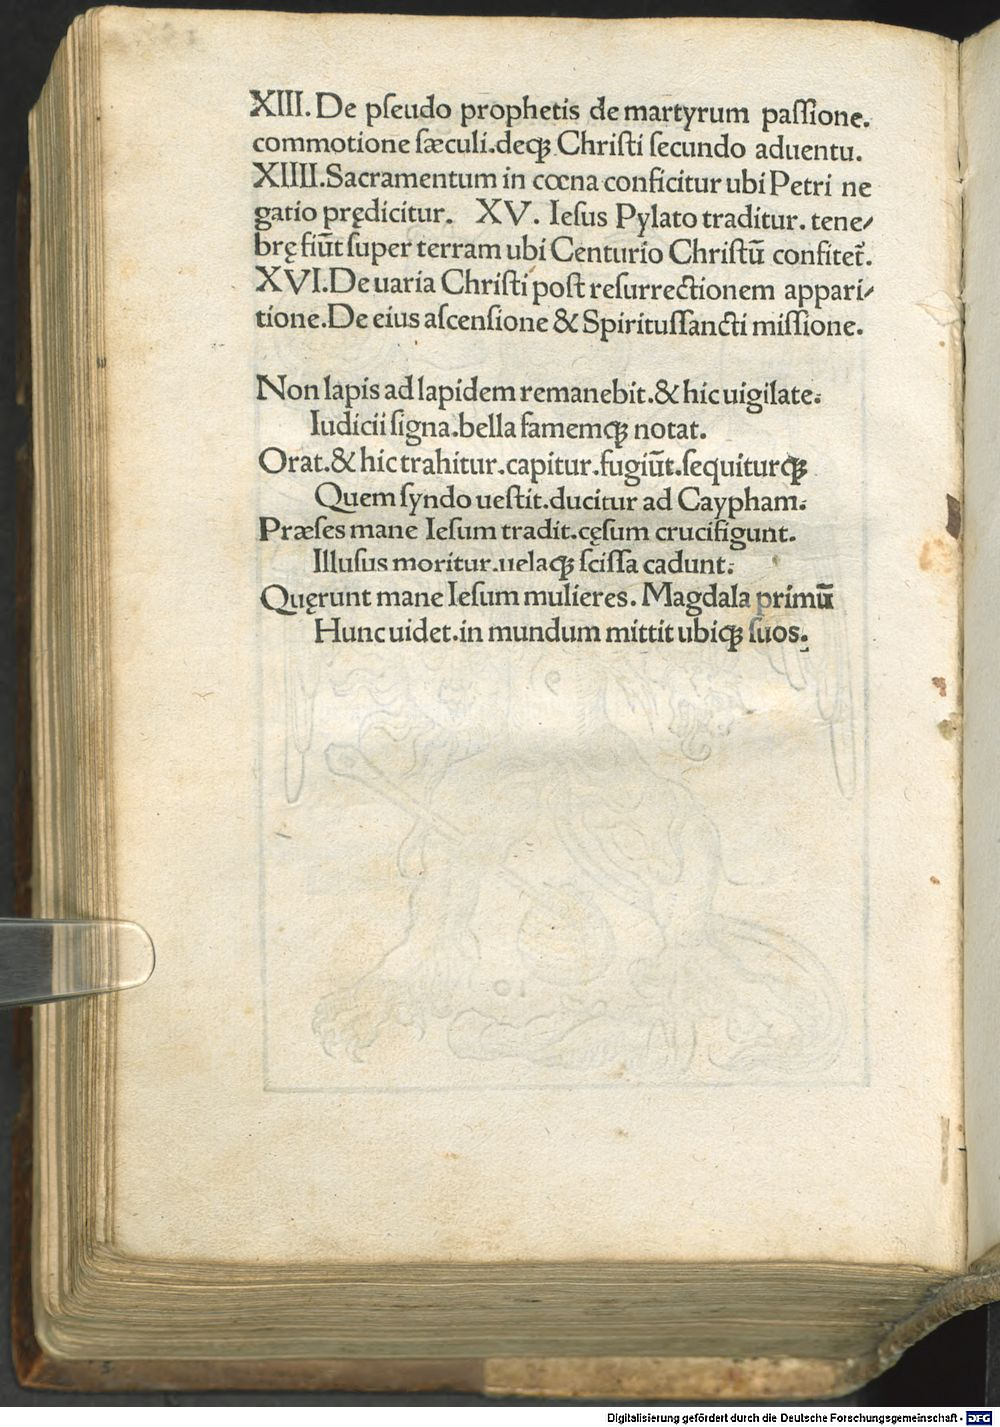 XIII. De pſeudo prophetis de martyrum paſſione.
commotione ſæculi.deqꝫ Chriſti ſecundo aduentu.
XIIII.Sacramentum in cœna conficitur ubi Petri ne
gatio prędicitur. XV. Ieſus Pylato traditur. tene⸗
brę fiūt ſuper terram ubi Centurio Chriſtū confitet̄.
XVI.De uaria Chriſti poſt reſurrectionem appari⸗
tione.De eius aſcenſione & Spirituſſancti miſſione.
Non lapis ad lapidem remanebit.& hic uigilate:
Iudicii ſigna.bella famemqꝫ notat.
Orat.& hic trahitur.capitur.fugiūt.ſequiturqꝫ
Quem ſyndo ueſtit.ducitur ad Caypham:
Præſes mane Ieſum tradit.cęſum crucifigunt.
Illuſus moritur.uelaqꝫ ſciſſa cadunt:
Quęrunt mane Ieſum mulieres. Magdala primū
Hunc uidet.in mundum mittit ubiqꝫ ſuos.
Digitalisierung gefördert durch die Deutsche Forschungsgemeinschaft - DFG